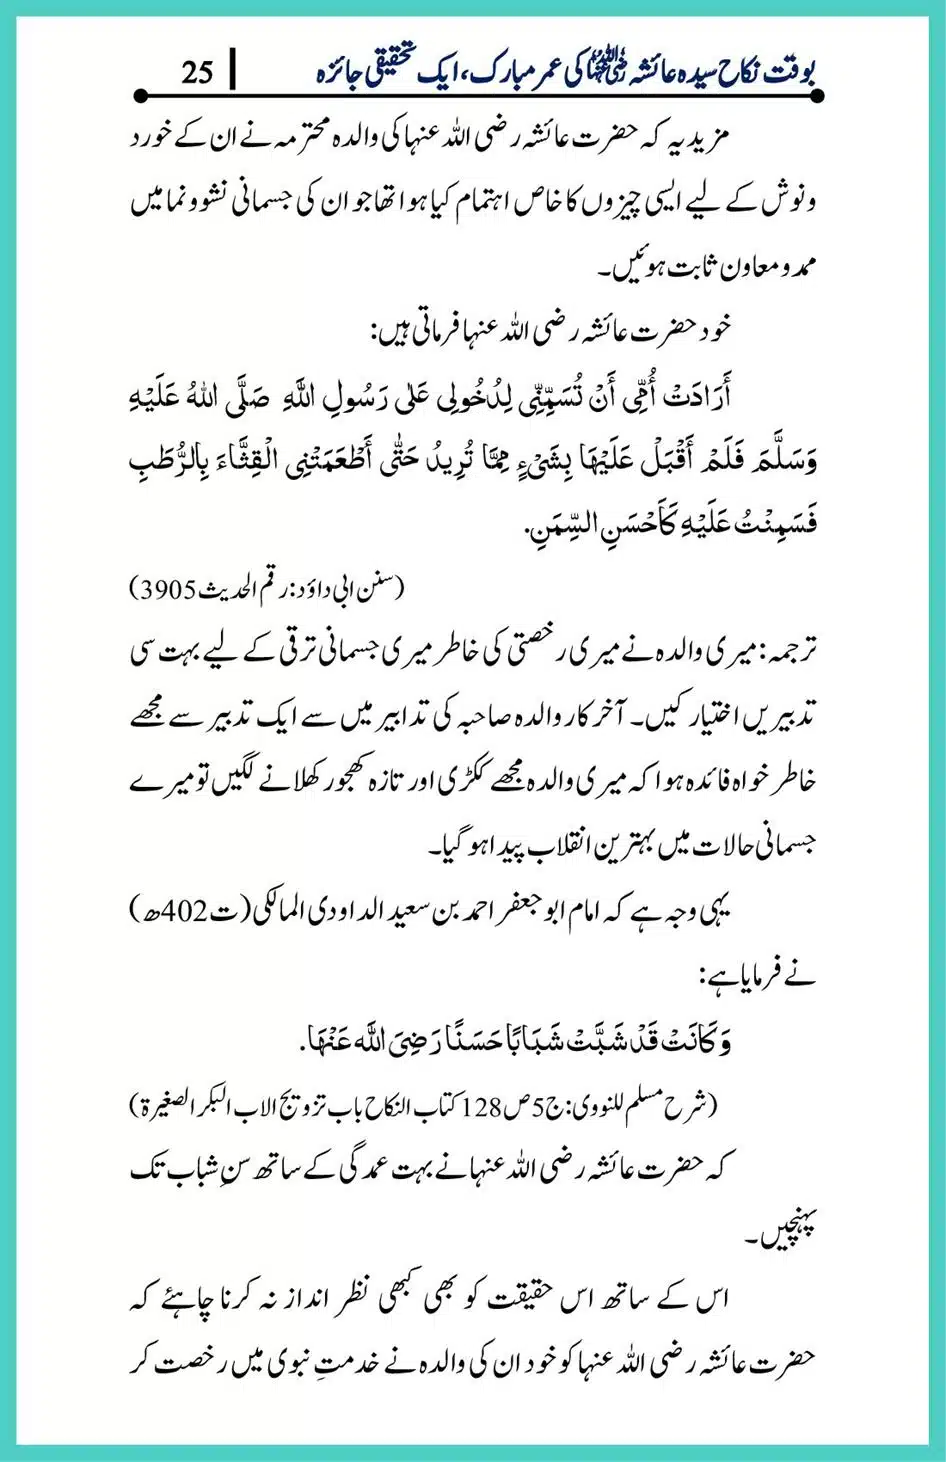 بوقت نکاح سیدہ عائشہ رضی اللہ عنہا کی عمر مبارک، ایک تحقیقی جائزہ | 25
مزید یہ کہ حضرت عائشہ رضی اللہ عنہا کی والدہ محترمہ نے ان کے خورد
و نوش کے لیے ایسی چیزوں کا خاص اہتمام کیا ہوا تھا جو ان کی جسمانی نشو و نما میں
ممد و معاون ثابت ہوئیں۔
خود حضرت عائشہ رضی اللہ عنہا فرماتی ہیں:
أَرَادَتْ أُمِّی أَنْ تُسَمِّنِّی لِدُخُولِی عَلٰی رَسُولِ اللَّهِ صَلَّی اللهُ عَلَیْهِ
وَسَلَّمَ فَلَمْ أَقْبَلْ عَلَیْهَا بِشَیْءٍ مِمَّا تُرِیدُ حَتّٰی أَطْعَمَتْنِی الْقِثَّاءَ بِالرُّطَبِ
فَسَمِنْتُ عَلَیْهِ کَأَحْسَنِ السِّمَنِ.
(سنن ابی داؤد: رقم الحدیث 3905)
ترجمہ: میری والدہ نے میری رخصتی کی خاطر میری جسمانی ترقی کے لیے بہت سی
تدبیریں اختیار کیں۔ آخر کار والدہ صاحبہ کی تدابیر میں سے ایک تدبیر سے مجھے
خاطر خواہ فائدہ ہوا کہ میری والدہ مجھے ککڑی اور تازہ کھجور کھلانے لگیں تو میرے
جسمانی حالات میں بہترین انقلاب پیدا ہو گیا۔
یہی وجہ ہے کہ امام ابو جعفر احمد بن سعید الداودی المالکی (ت 402ھ)
نے فرمایا ہے:
وَکَانَتْ قَدْ شَبَّتْ شَبَابًا حَسَنًا رَضِیَ اللَّه عَنْهَا.
(شرح مسلم للنووی: ج 5 ص 128 کتاب النکاح باب تزویج الاب البکر الصغیرة)
کہ حضرت عائشہ رضی اللہ عنہا نے بہت عمدگی کے ساتھ سنِ شباب تک
پہنچیں۔
اس کے ساتھ اس حقیقت کو بھی کبھی نظر انداز نہ کرنا چاہئے کہ
حضرت عائشہ رضی اللہ عنہا کو خود ان کی والدہ نے خدمتِ نبوی میں رخصت کر